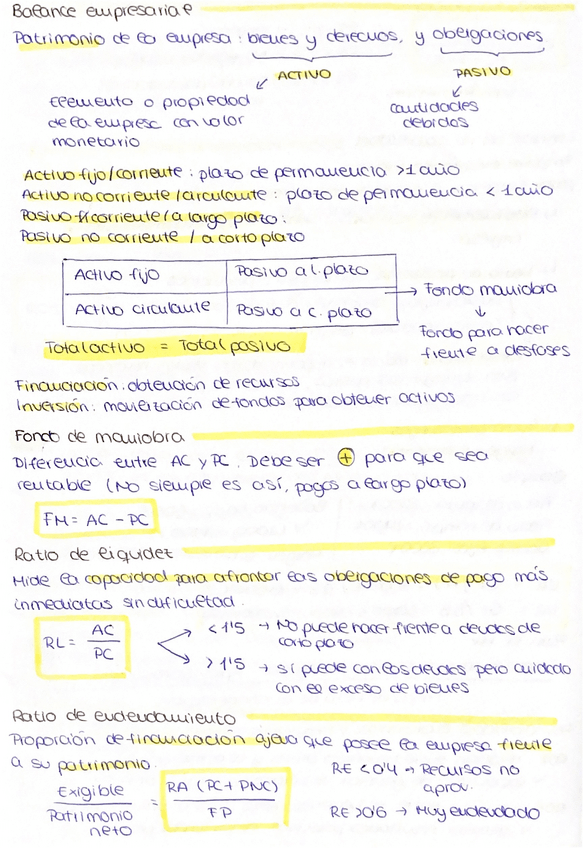 Balance empresarial
Patrimonio de la empresa: bienes y derechos, y obligaciones
ACTIVO
PASIVO
Elemento o propiedad
de la empresa con valor
monetario
cantidades
debidas
Activo fijo/corriente: plazo de permanencia >1 año
Activo no corriente/circulante: plazo de permanencia < 1 año
Pasivo f/corriente/a largo plazo:
Pasivo no corriente / a corto plazo
Activo fijo
Pasivo a l. plazo
Activo circulante
Pasivo a c. plazo
→ Fondo maniobra
Fondo para hacer
frente a desfases
Total activo = Total pasivo
Financiación: obtención de recursos
Inversión: movilización de fondos para obtener activos
Fondo de maniobra
Diferencia entre AC y PC. Debe ser + para que sea
rentable (No siempre es así, pagos a largo plazo)
FM = AC - PC
Ratio de liquidez
Mide la capacidad para afrontar las obligaciones de pago más
inmediatas sin dificultad.
RL = AC / PC
< 1'5 → No puede hacer frente a deudas de
corto plazo
> 1'5 → sí puede con las deudas pero cuidado
con el exceso de bienes
Ratio de endeudamiento
Proporción de financiación ajena que posee la empresa frente
a su patrimonio.
RE <0'4 → Recursos no
aprov.
Exigible / Patrimonio neto = RA (PC+ PNC) / FP
RE >0'6 → Muy endeudado